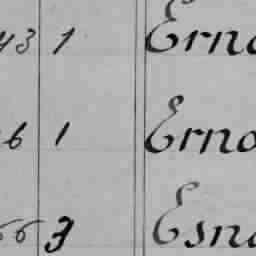 43 1 Erno
6 1 Erno
66 3 Esna